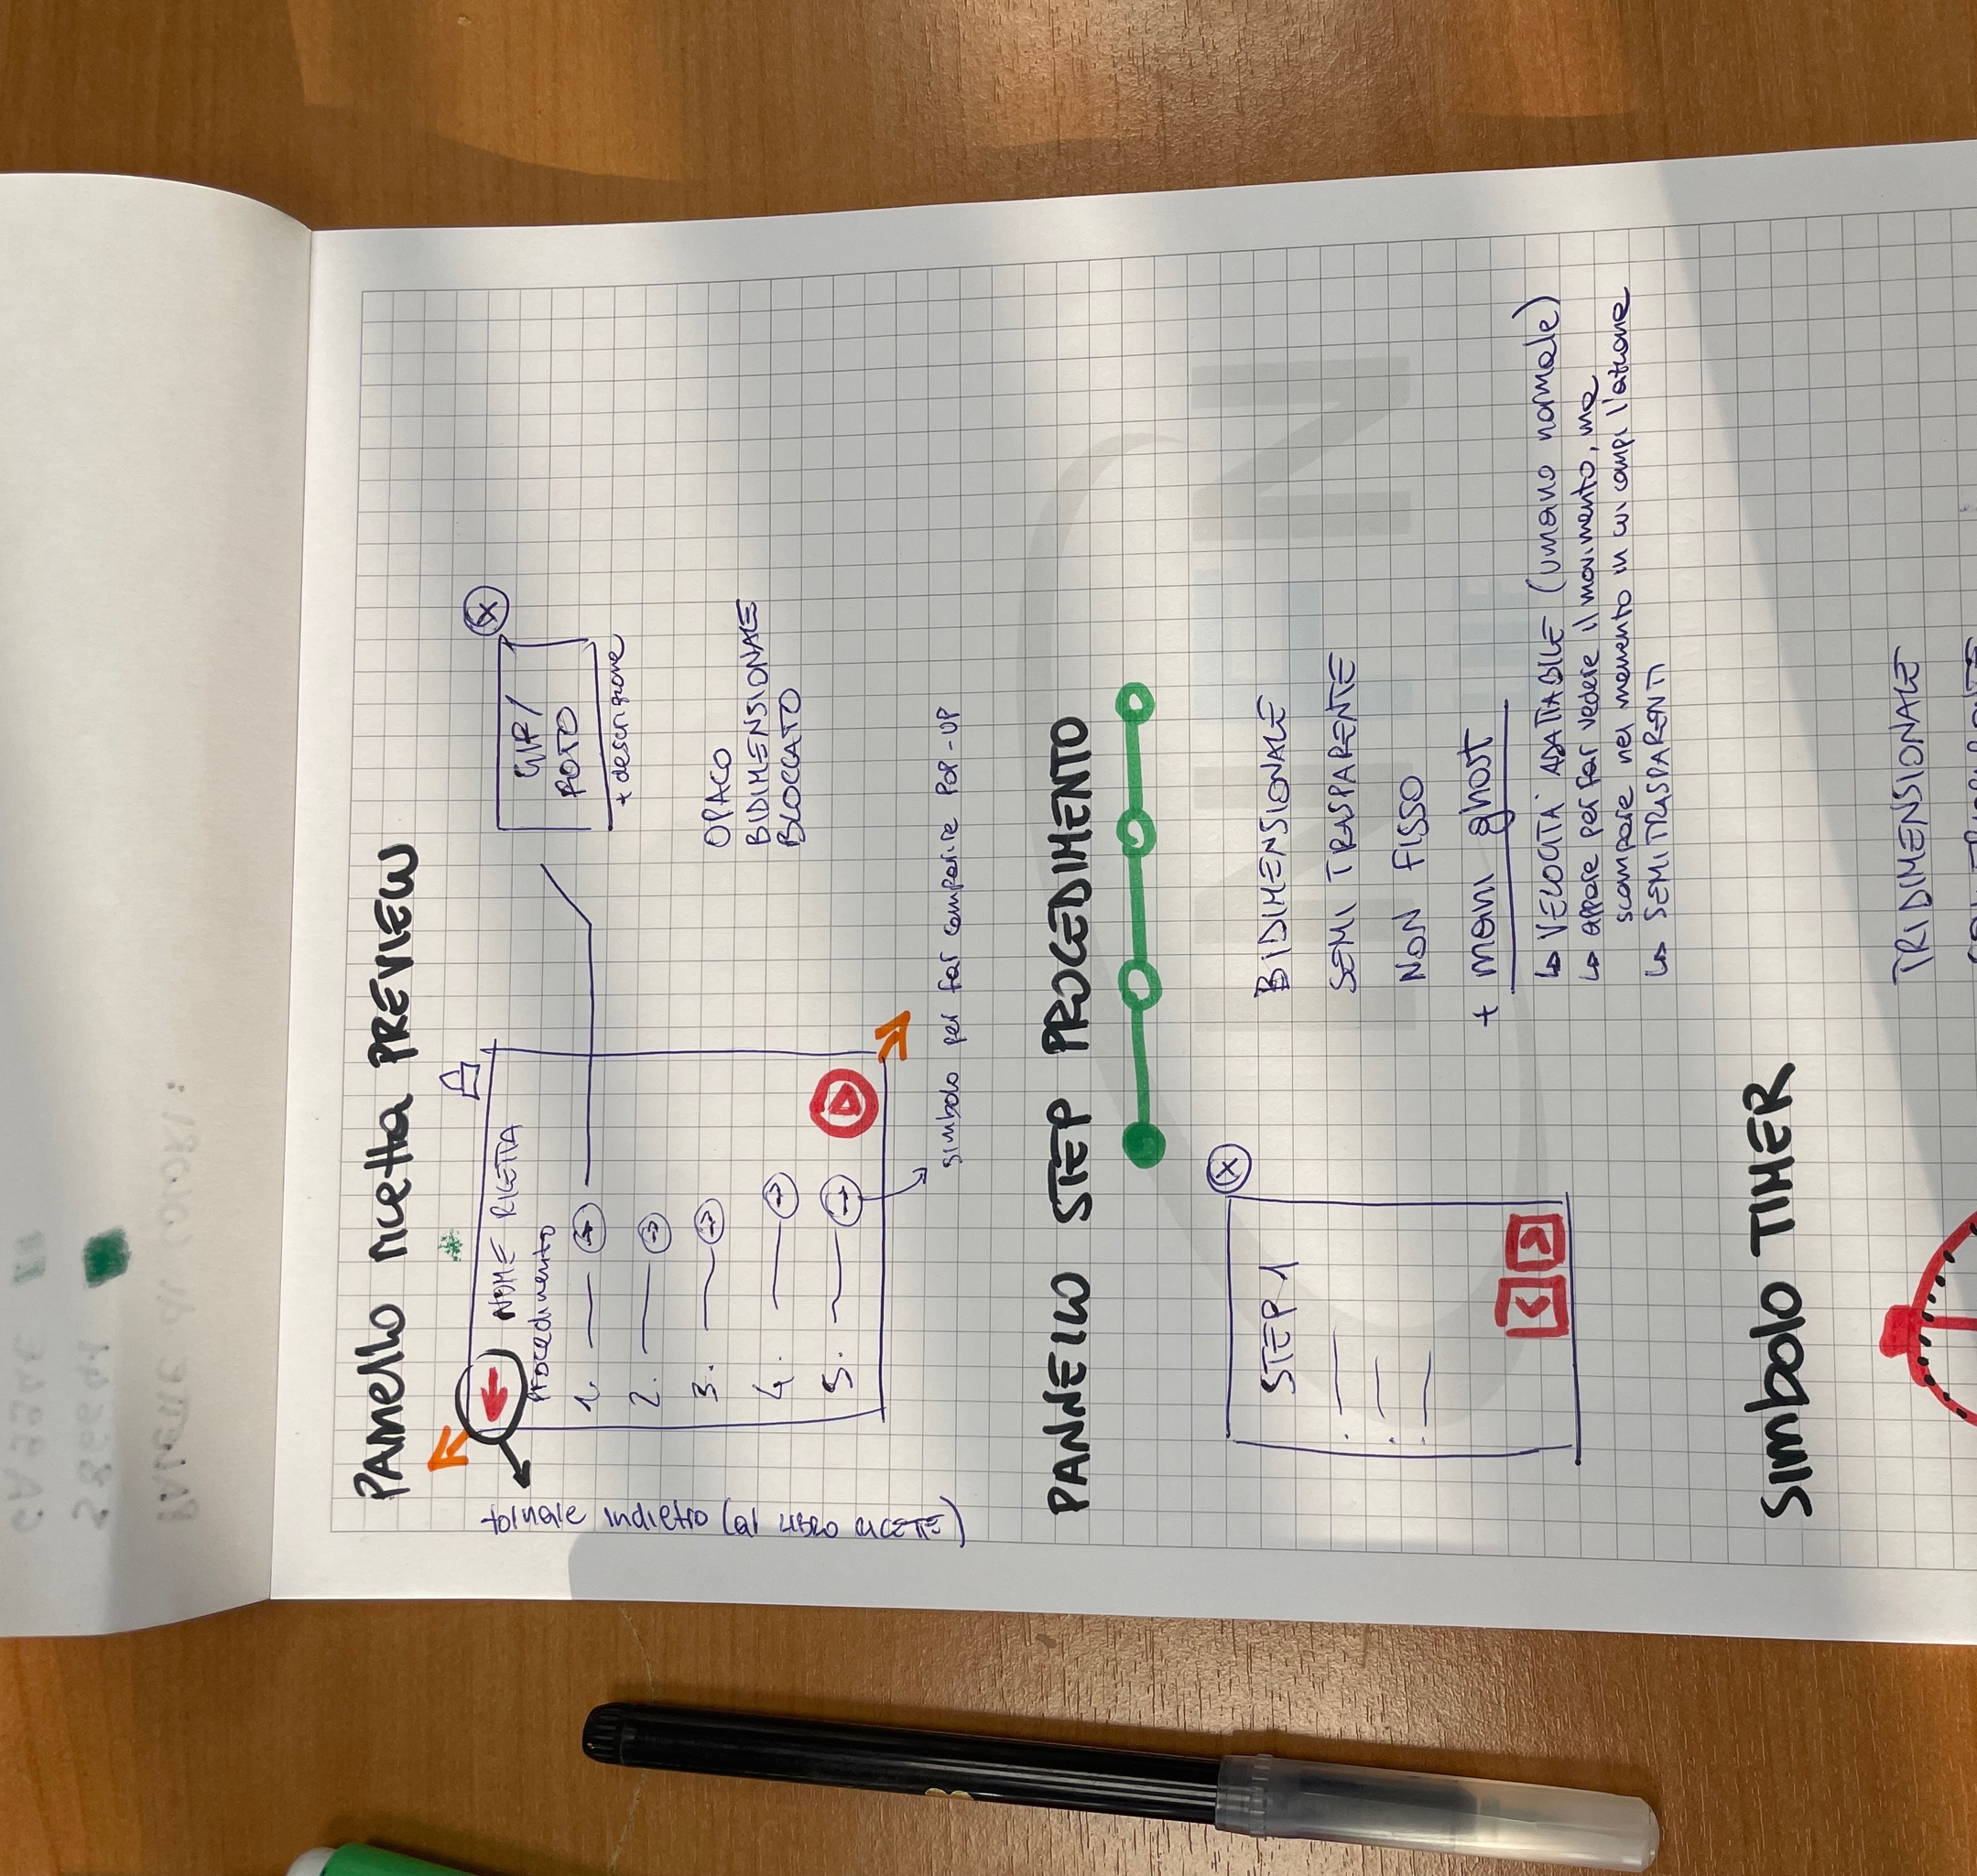 PANNELLO RICETTA PREVIEW
NOME RICETTA
Procedimento
1.
2.
3.
4.
5.
GIF/
FOTO
+ descrizione
OPACO
BIDIMENSIONALE
BLOCCATO
tornare indietro (al LIBRO RICETTE)
simbolo per far comparire POP-UP
PANNELLO STEP PROCEDIMENTO
STEP 1
BIDIMENSIONALE
SEMI TRASPARENTE
NON FISSO
+ mani ghost
↳ VELOCITA' ADATTABILE (umano normale)
↳ appare per far vedere il movimento, ma
scompare nel momento in cui compi l'azione
↳ SEMITRASPARENTI
SIMBOLO TIMER
TRIDIMENSIONALE